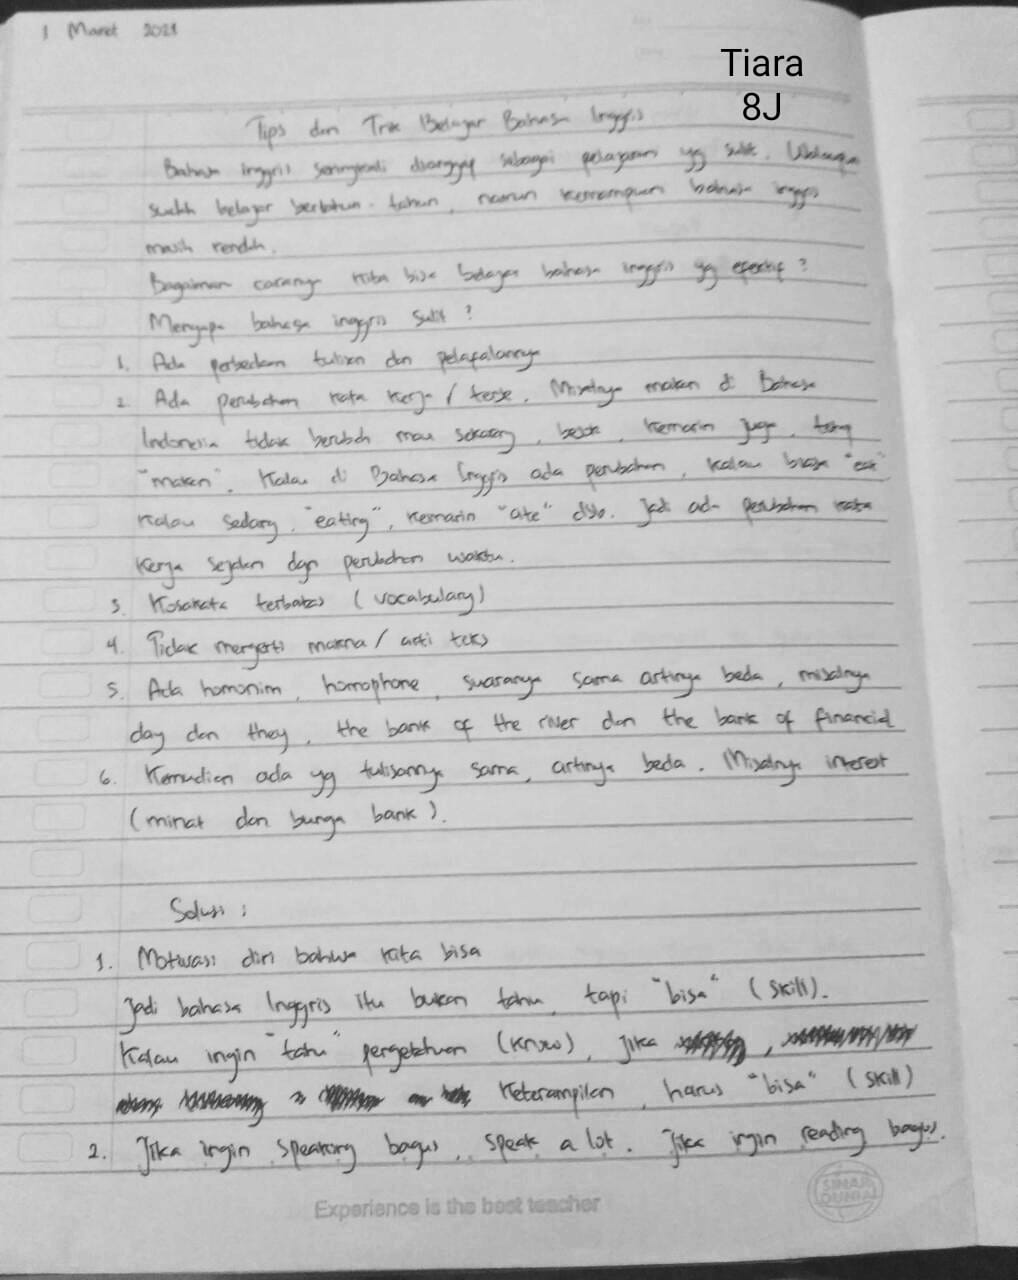 1 Maret 2021
Tiara
8J
Tips dan Trik Belajar Bahasa Inggris
Bahasa inggris seringkali dianggap sebagai pelajaran yg sulit. Walaupun
sudah belajar bertahun-tahun, namun kemampuan bahasa inggris
masih rendah.
Bagaiman caranya kita bisa belajar bahasa inggris yg efektif ?
Mengapa bahasa inggris sulit ?
1. Ada perbedaan tulisan dan pelafalannya
2. Ada perubahan kata kerja / tense. Misalnya makan di Bahasa
Indonesia tidak berubah mau sekarang, besok, kemarin juga, tetap
"makan". Kalau di Bahasa Inggris ada perubahan, kalau biasa "eat"
kalau sedang, "eating", kemarin "ate" dsb. Jadi ada perubahan kata
kerja sejalan dgn perubahan waktu.
3. Kosakata terbatas (vocabulary)
4. Tidak mengerti makna / arti teks
5. Ada homonim, homophone, suaranya sama artinya beda, misalnya
day dan they, the bank of the river dan the bank of financial
6. Kemudian ada yg tulisannya sama, artinya beda. Misalnya interest
(minat dan bunga bank).
Solusi :
1. Motivasi diri bahwa kita bisa
Jadi bahasa Inggris itu bukan tahu, tapi "bisa" (skill).
Kalau ingin "tahu" pengetahuan (know), Jika
keterampilan, harus "bisa" (skill)
2. Jika ingin speaking bagus, speak a lot. Jika ingin reading bagus.
Experience is the best teacher
SINAR
DUNIA